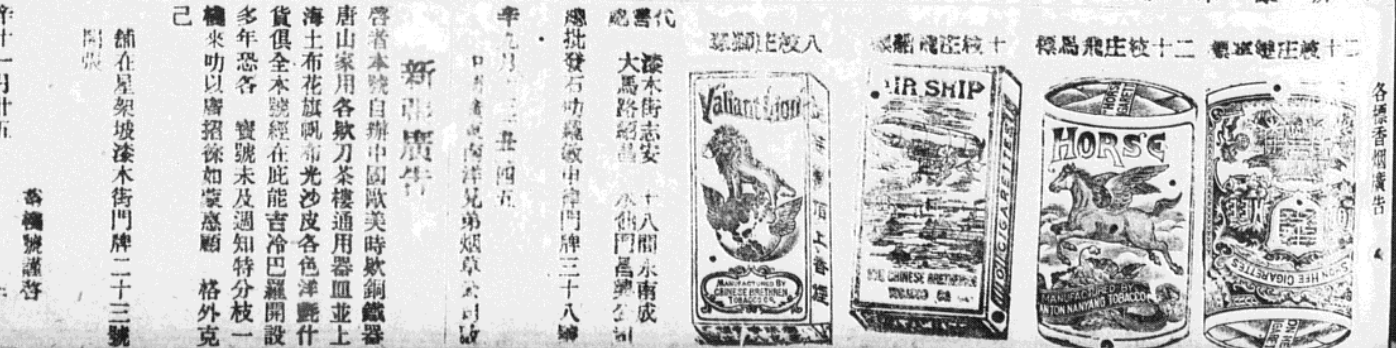 各標香烟廣告
十二枝庄雙喜標
HORSE
SHON HEE CIGARETTES
二十枝庄飛馬標
HORSE
MANUFACTURED BY
CANTON NANYANG TOBACCO
十枝庄飛艇標
AIR SHIP
CIGARETTES
THE CHINESE BRETHREN
TOBACCO CO
八枝庄獅球
Valiant Lion
頂上香煙
MANUFACTURED BY
CHINESE BRETHREN
TOBACCO CO.
代售處
漆木街志安 十八間永南成
大馬路紹昌 水仙門昌興公司
總批發石叻總敘中律門牌三十八號
南洋兄弟烟草公司啟
新張廣告
啓者本號自辦中國歐美時欵銅鐵器
唐山家用各欵刀茶樓通用器皿並上
海土布花旗帆布光沙皮各色洋氈什
貨俱全本號經在庇能吉冷巴羅開設
多年恐各 寶號未及週知特分枝一
機來叻以廣招徐如蒙惠顧 格外克
己
舖在星架坡漆木街門牌二十三號
開張
機號謹啓
辛十一月廿五